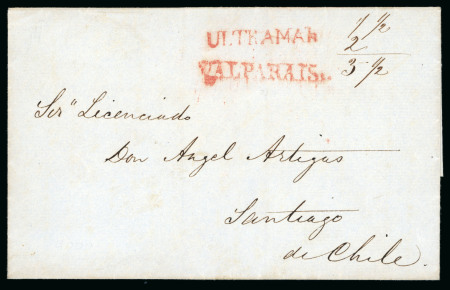 ULTRAMAR
VALPARAISO.
1 1/2
2
3 1/2
"Ser" Licenciado
Don Angel Artigas
Santiago
de Chile.